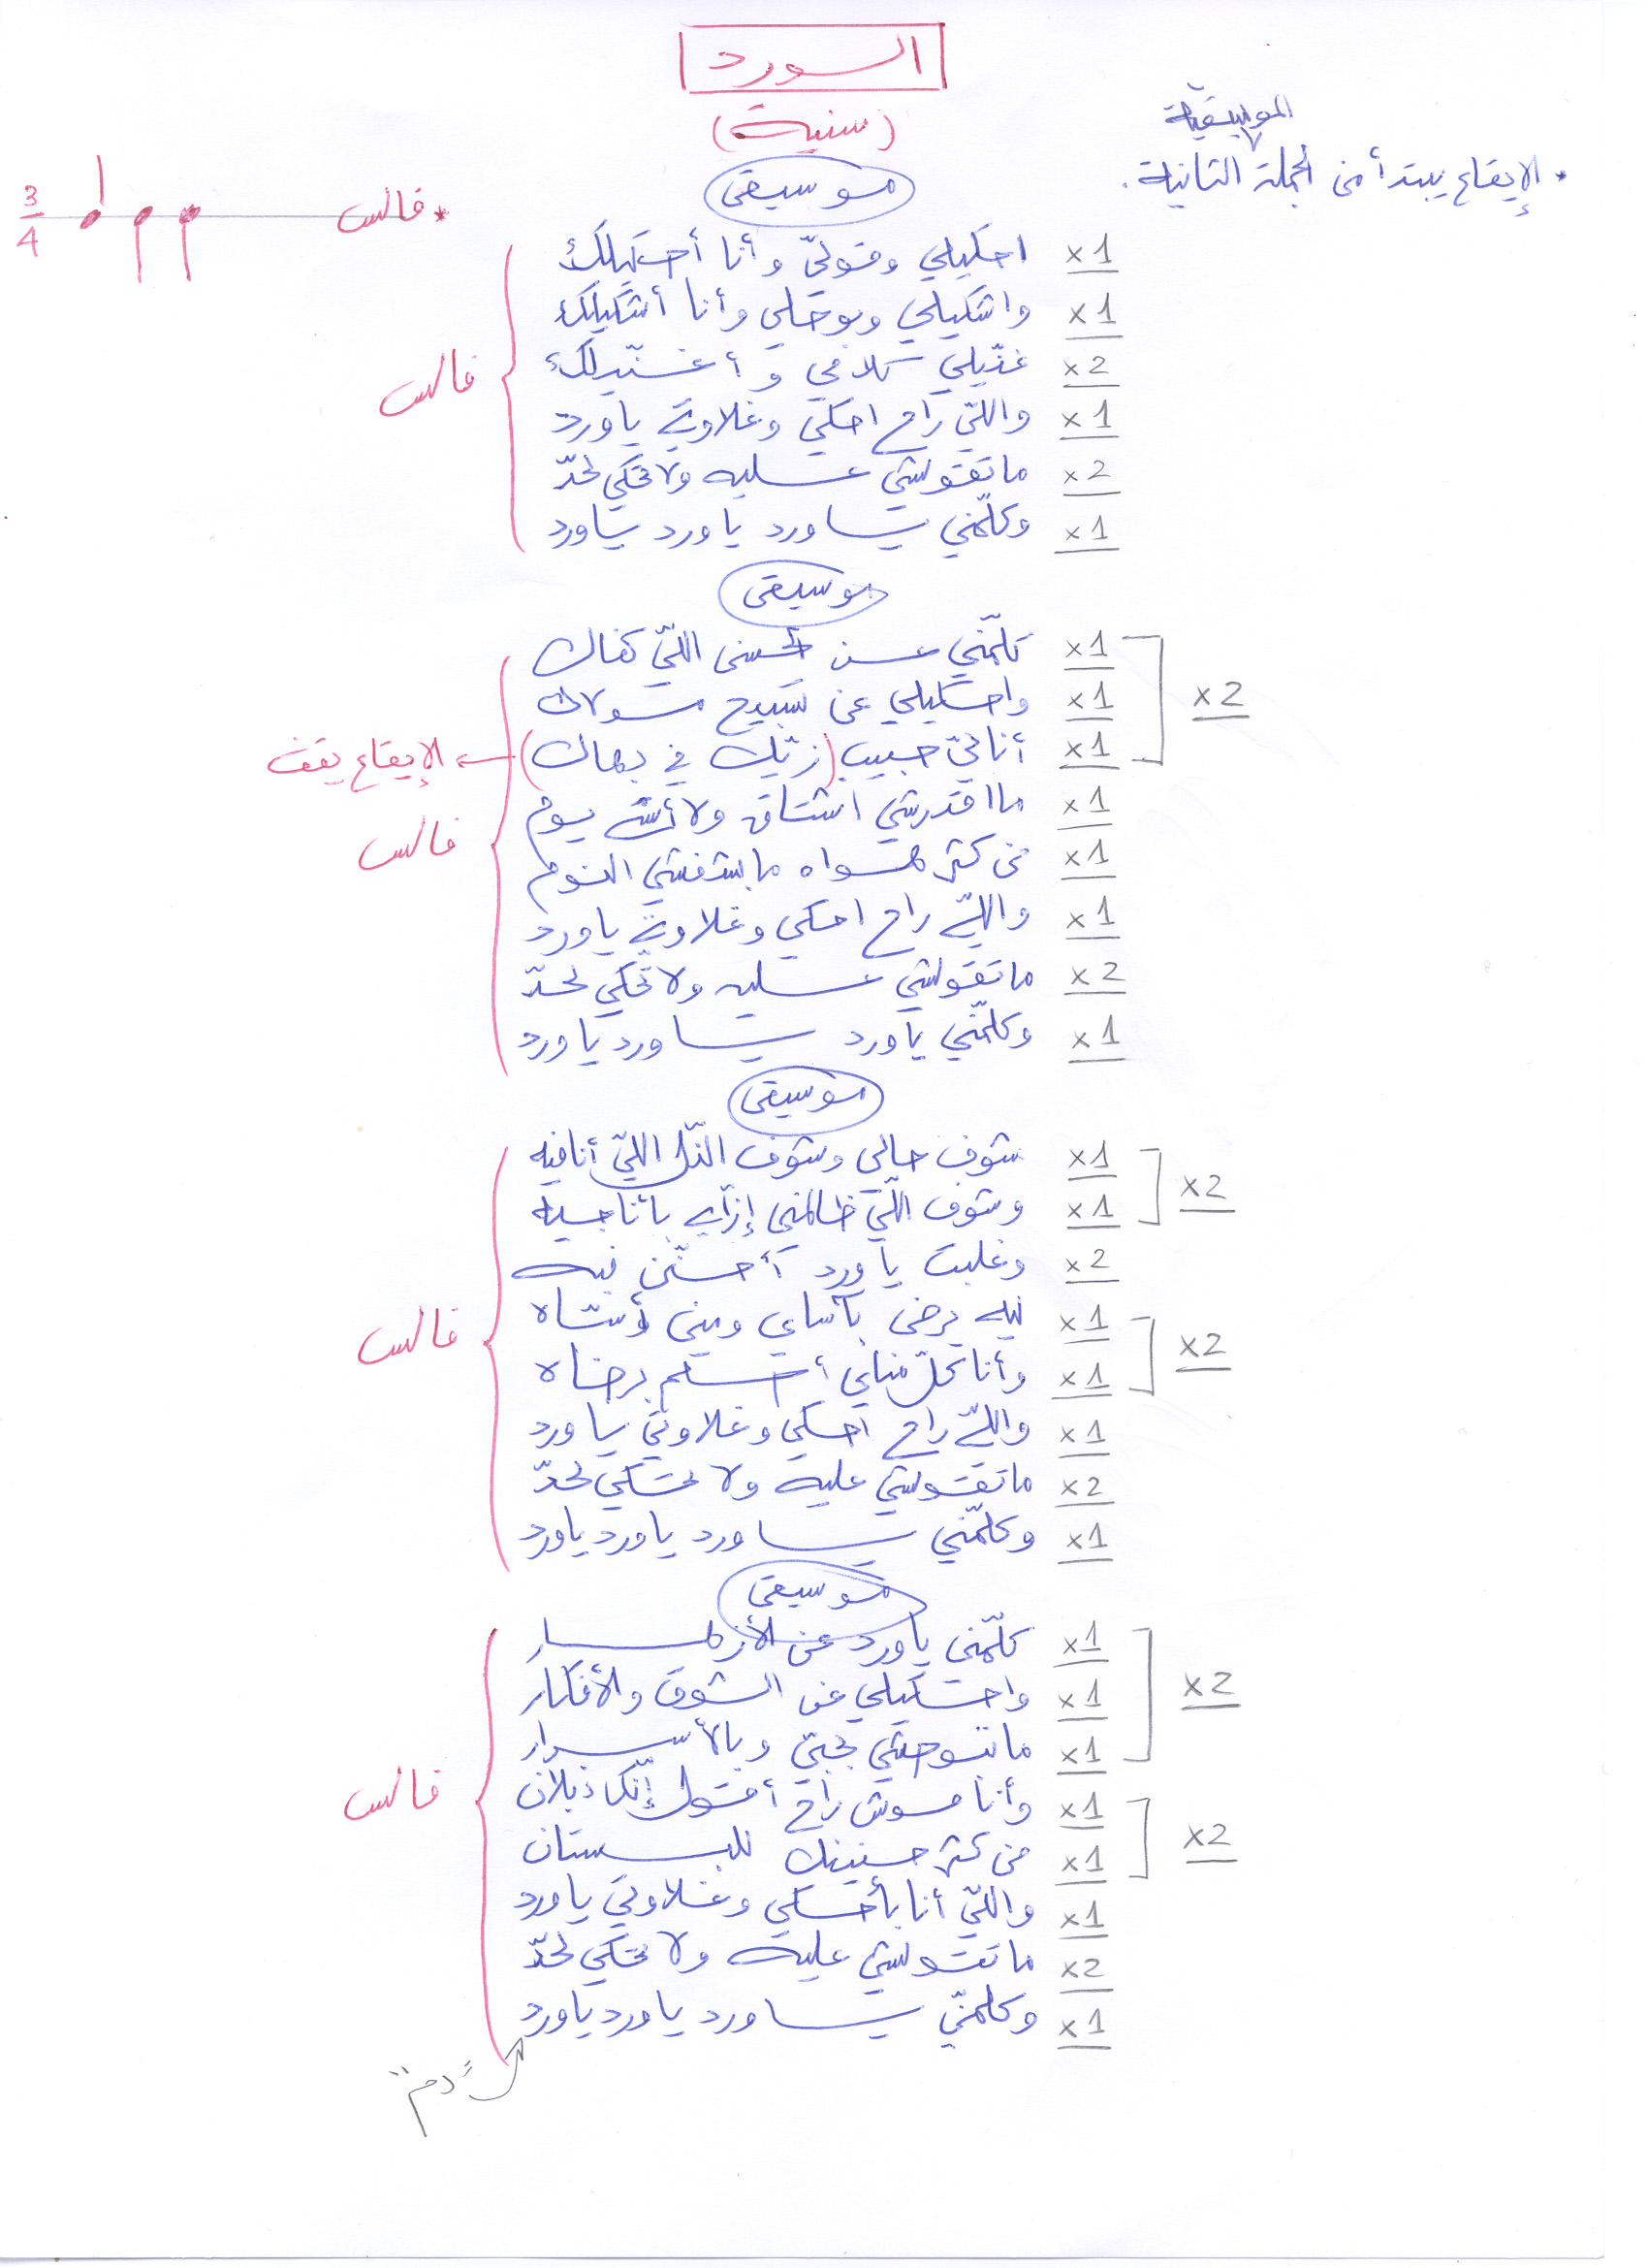 الـورد
(سنية)
الموسيقية
• الإيقاع يبتدأ من الجملة الثانية.
موسيقى
* فالس
3/4
احكيلي وقولّي وأنا أحكيلك x1
واشكيلي وبوحلي وأنا أشكيلك x1
غنّيلي كلامي وأغنّيلك x2
واللّي راح احكي وغلاوتي ياورد x1
ماتقولشي عليه ولا تحكي لحدّ x2
وكلّمني ياورد ياورد ياورد x1
فالس
موسيقى
كلّمني عن الحسن اللّي كفاك x1
واحكيلي عن تسبيح مولاك x1
أنا ليّ حبيب (زيّك في بهاك) x1
x2
الإيقاع يقف
مااقدرشي اشتاق ولا أنساه يوم x1
من كتر هواه مابشفشي النوم x1
واللّي راح احكي وغلاوتي ياورد x1
ماتقولشي عليه ولا تحكي لحدّ x2
وكلّمني ياورد ياورد ياورد x1
فالس
موسيقى
شوف حالي وشوف الذّل اللّي أنا فيه x1
وشوف اللّي ظالمني إزّاي بأناجيه x1
x2
وغلبت ياورد أحنّن فيه x2
ليه يرضى بأساي ومين أساه x1
وأنا كلّ مناي أنعم برضاه x1
x2
واللّي راح احكي وغلاوتي ياورد x1
ماتقولشي عليه ولا تحكي لحدّ x2
وكلّمني ياورد ياورد ياورد x1
فالس
موسيقى
كلّمني ياورد عن الأزهار x1
واحكيلي عن الشوق والأفكار x1
ماتبوحشي بحبّي وبالأسرار x1
x2
وأنا موش راح أقول إنّك دبلان x1
من كتر حنينك للبستان x1
x2
واللّي أنا بأحكي وغلاوتي ياورد x1
ماتقولشي عليه ولا تحكي لحدّ x2
وكلمنّي ياورد ياورد ياورد x1
فالس
"دم"